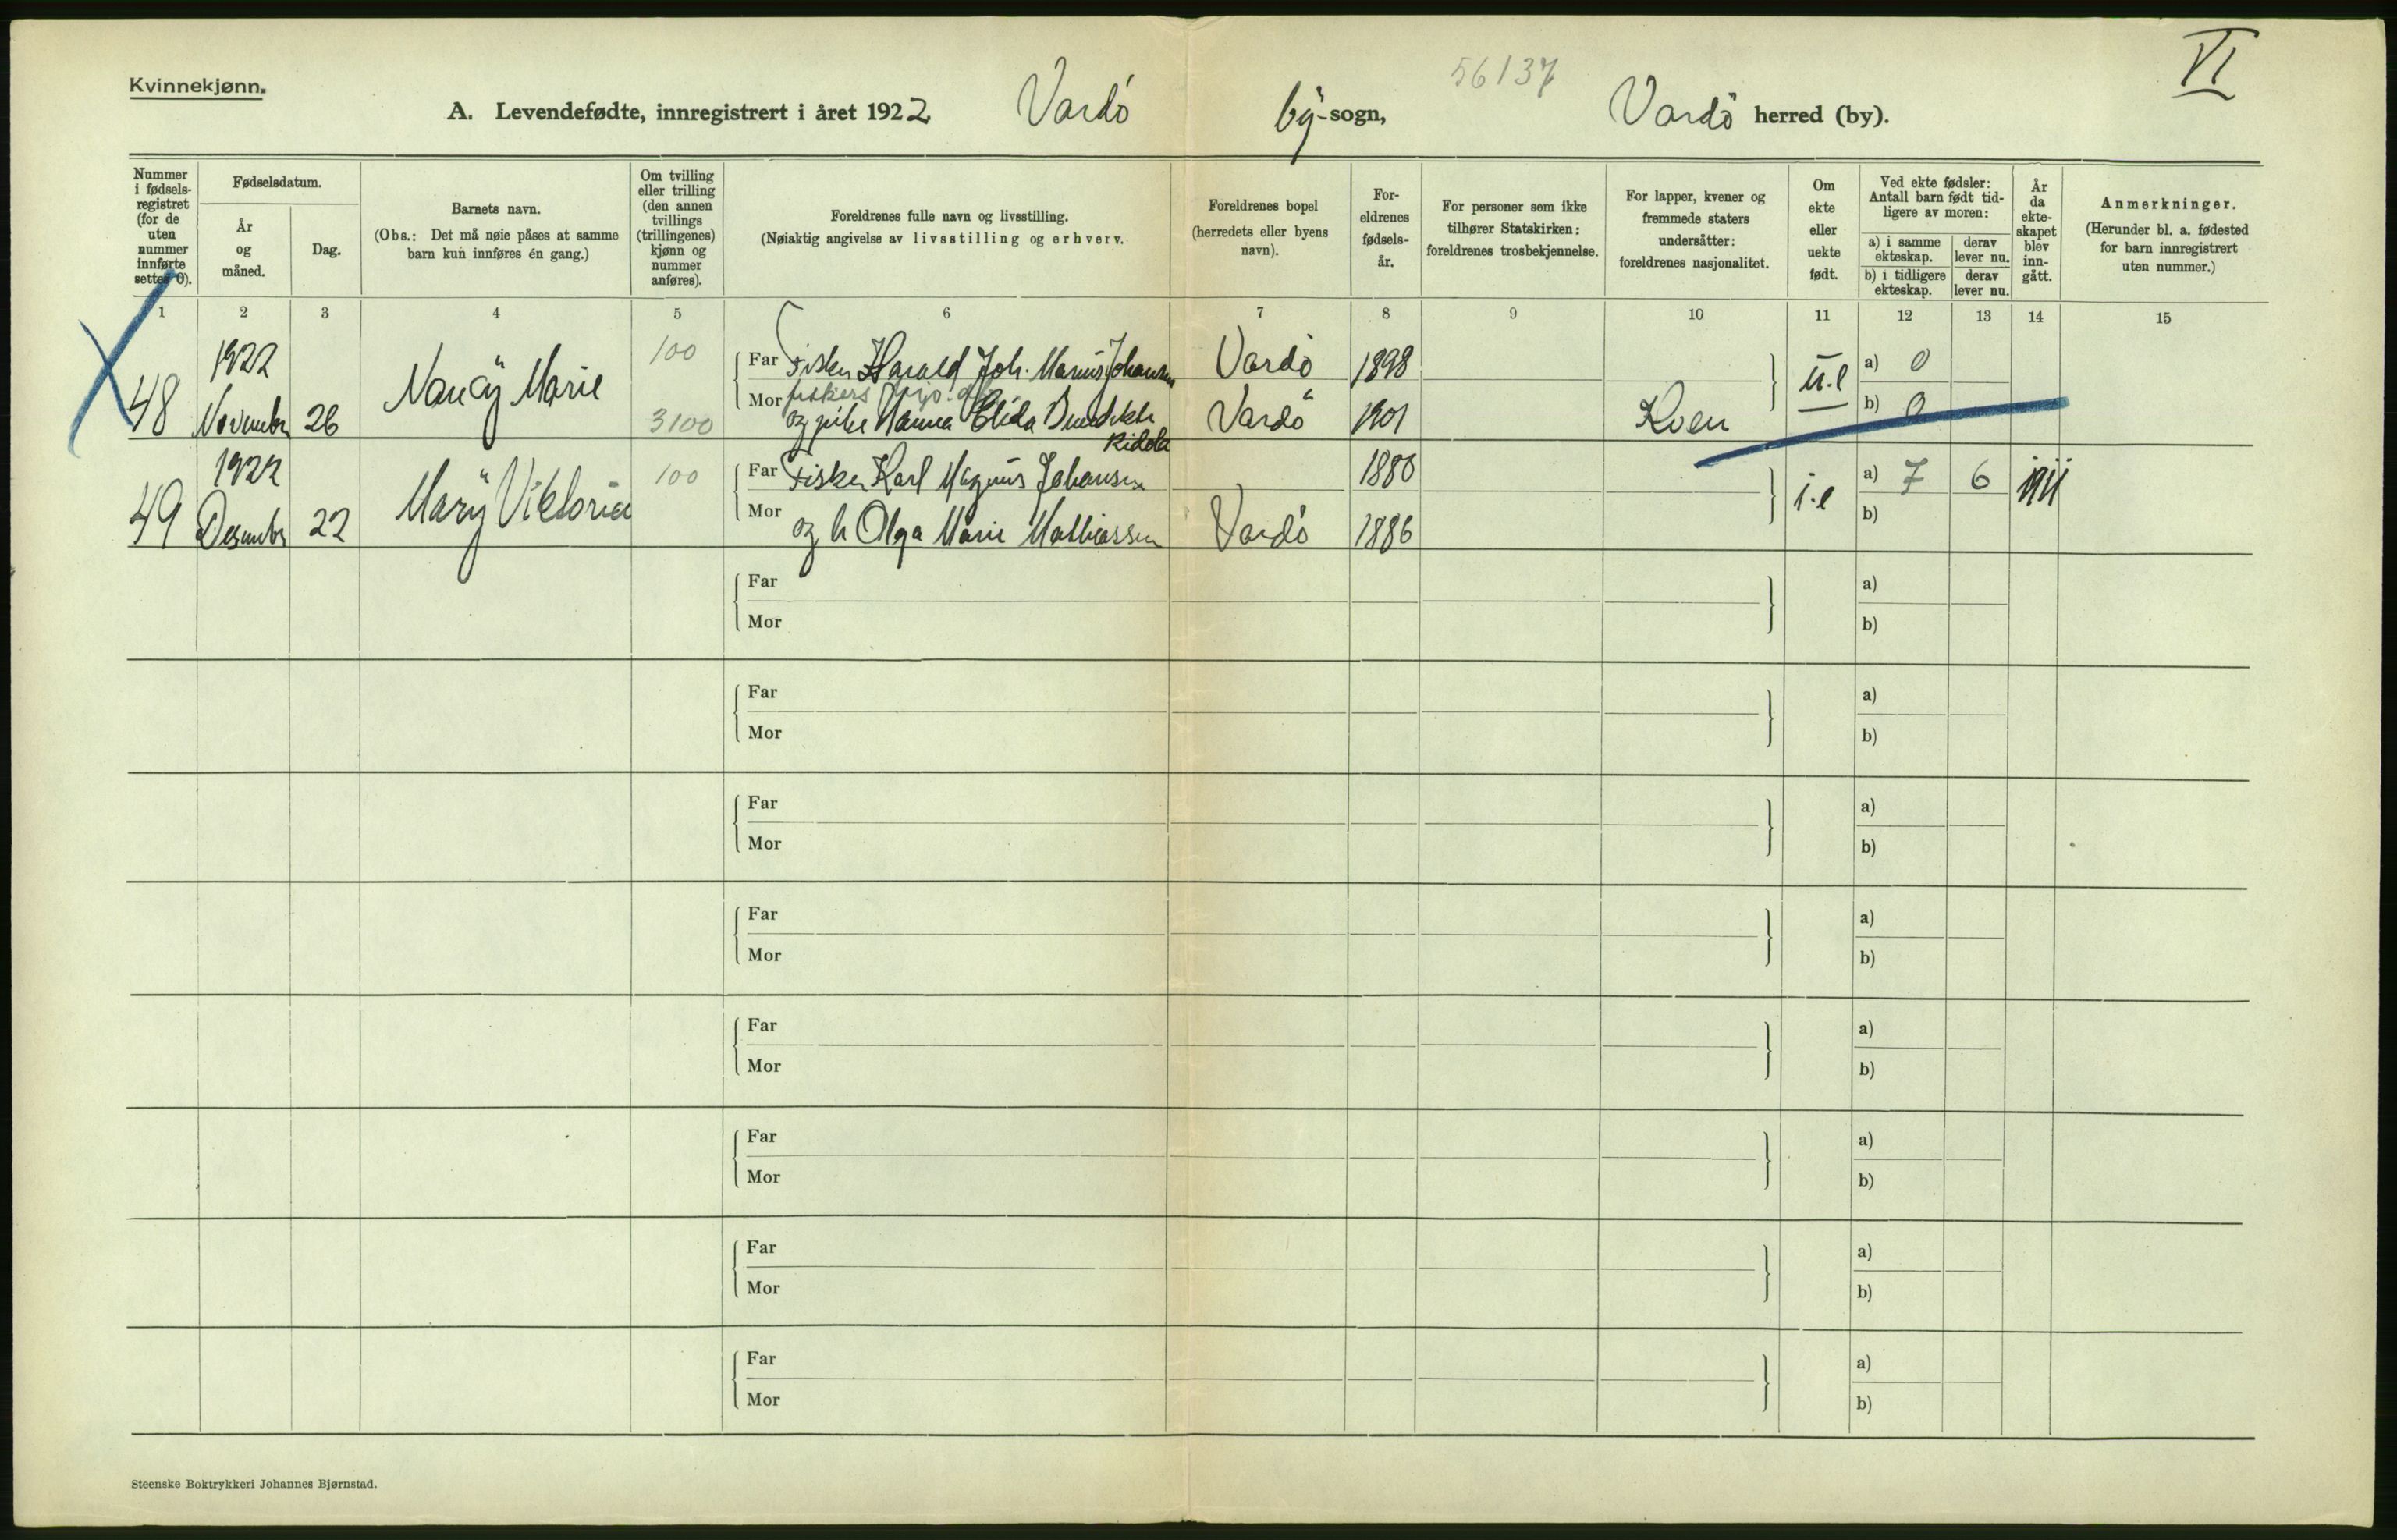 Kvinnekjønn.
56137
VI
A. Levendefødte, innregistrert i året 1922. Vardö by-sogn, Vardö herred (by).
Nummer i fødselsregistret (for de uten nummer innførte settes 0).
Fødselsdatum.
År og måned.
Dag.
Barnets navn.
(Obs.: Det må nøie påses at samme barn kun innføres én gang.)
Om tvilling eller trilling (den annen tvillings (trillingenes) kjønn og nummer anføres).
Foreldrenes fulle navn og livsstilling.
(Nøiaktig angivelse av livsstilling og erhverv.
Foreldrenes bopel (herredets eller byens navn).
Foreldrenes fødselsår.
For personer som ikke tilhører Statskirken: foreldrenes trosbekjennelse.
For lapper, kvener og fremmede staters undersåtter: foreldrenes nasjonalitet.
Om ekte eller uekte født.
Ved ekte fødsler: Antall barn født tidligere av moren:
a) i samme ekteskap.
derav lever nu.
b) i tidligere ekteskap.
derav lever nu.
År da ekteskapet blev inngått.
Anmerkninger.
(Herunder bl. a. fødested for barn innregistrert uten nummer.)
1 2 3 4 5 6 7 8 9 10 11 12 13 14 15
1922 100 Far Fisker Harald Joh. Marius Johansen Vardö 1898 u.e a) 0
48 November 26 Nancy Marie 3100 Mor fiskers
og pike Hanna Elida Vardö 1901 Kven b) 0
1922 100 Far Fisker Karl Magnus Johansen 1880 i.e a) 7 6 1911
49 Desember 22 Mary Viktoria Mor og h Olga Marie Mathiassen Vardö 1886 b)
Far a)
Mor b)
Far a)
Mor b)
Far a)
Mor b)
Far a)
Mor b)
Far a)
Mor b)
Far a)
Mor b)
Far a)
Mor b)
Far a)
Mor b)
Steenske Boktrykkeri Johannes Bjørnstad.